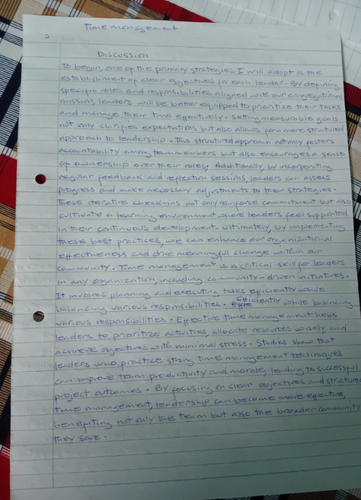 Time management
2
Discussion
To begin, one of the primary strategies I will adopt is the
establishment of clear objectives for each leader. By defining
specific roles and responsibilities aligned with our
mission, leaders will be better equipped to prioritize their tasks
and manage their time effectively. Setting measurable goals
not only clarifies expectations but also allows for a more structured
approach to leadership. This structured approach not only fosters
accountability among team members but also encourages a sense
of ownership over their roles. Additionally, by incorporating
regular feedback and reflection sessions, leaders can assess
progress and make necessary adjustments to their strategies.
These iterative sessions not only reinforce commitment but also
cultivate a learning environment where leaders feel supported
in their continuous development. Ultimately, by implementing
these best practices, we can enhance our organizational
effectiveness and drive meaningful change within our
community. Time management is a critical skill for leaders
in any organization, including community-driven initiatives.
It involves planning and executing tasks efficiently while
balancing various responsibilities. efficiently while balancing
various responsibilities. Effective time management helps
leaders to prioritize activities, allocate resources wisely and
achieve objectives with minimal stress. Studies show that
leaders who practice strong time management techniques
can improve team productivity and morale, leading to successful
project outcomes. By focusing on clear objectives and structured
time management, leadership can become more effective,
benefiting not only the team but also the broader community
they serve.